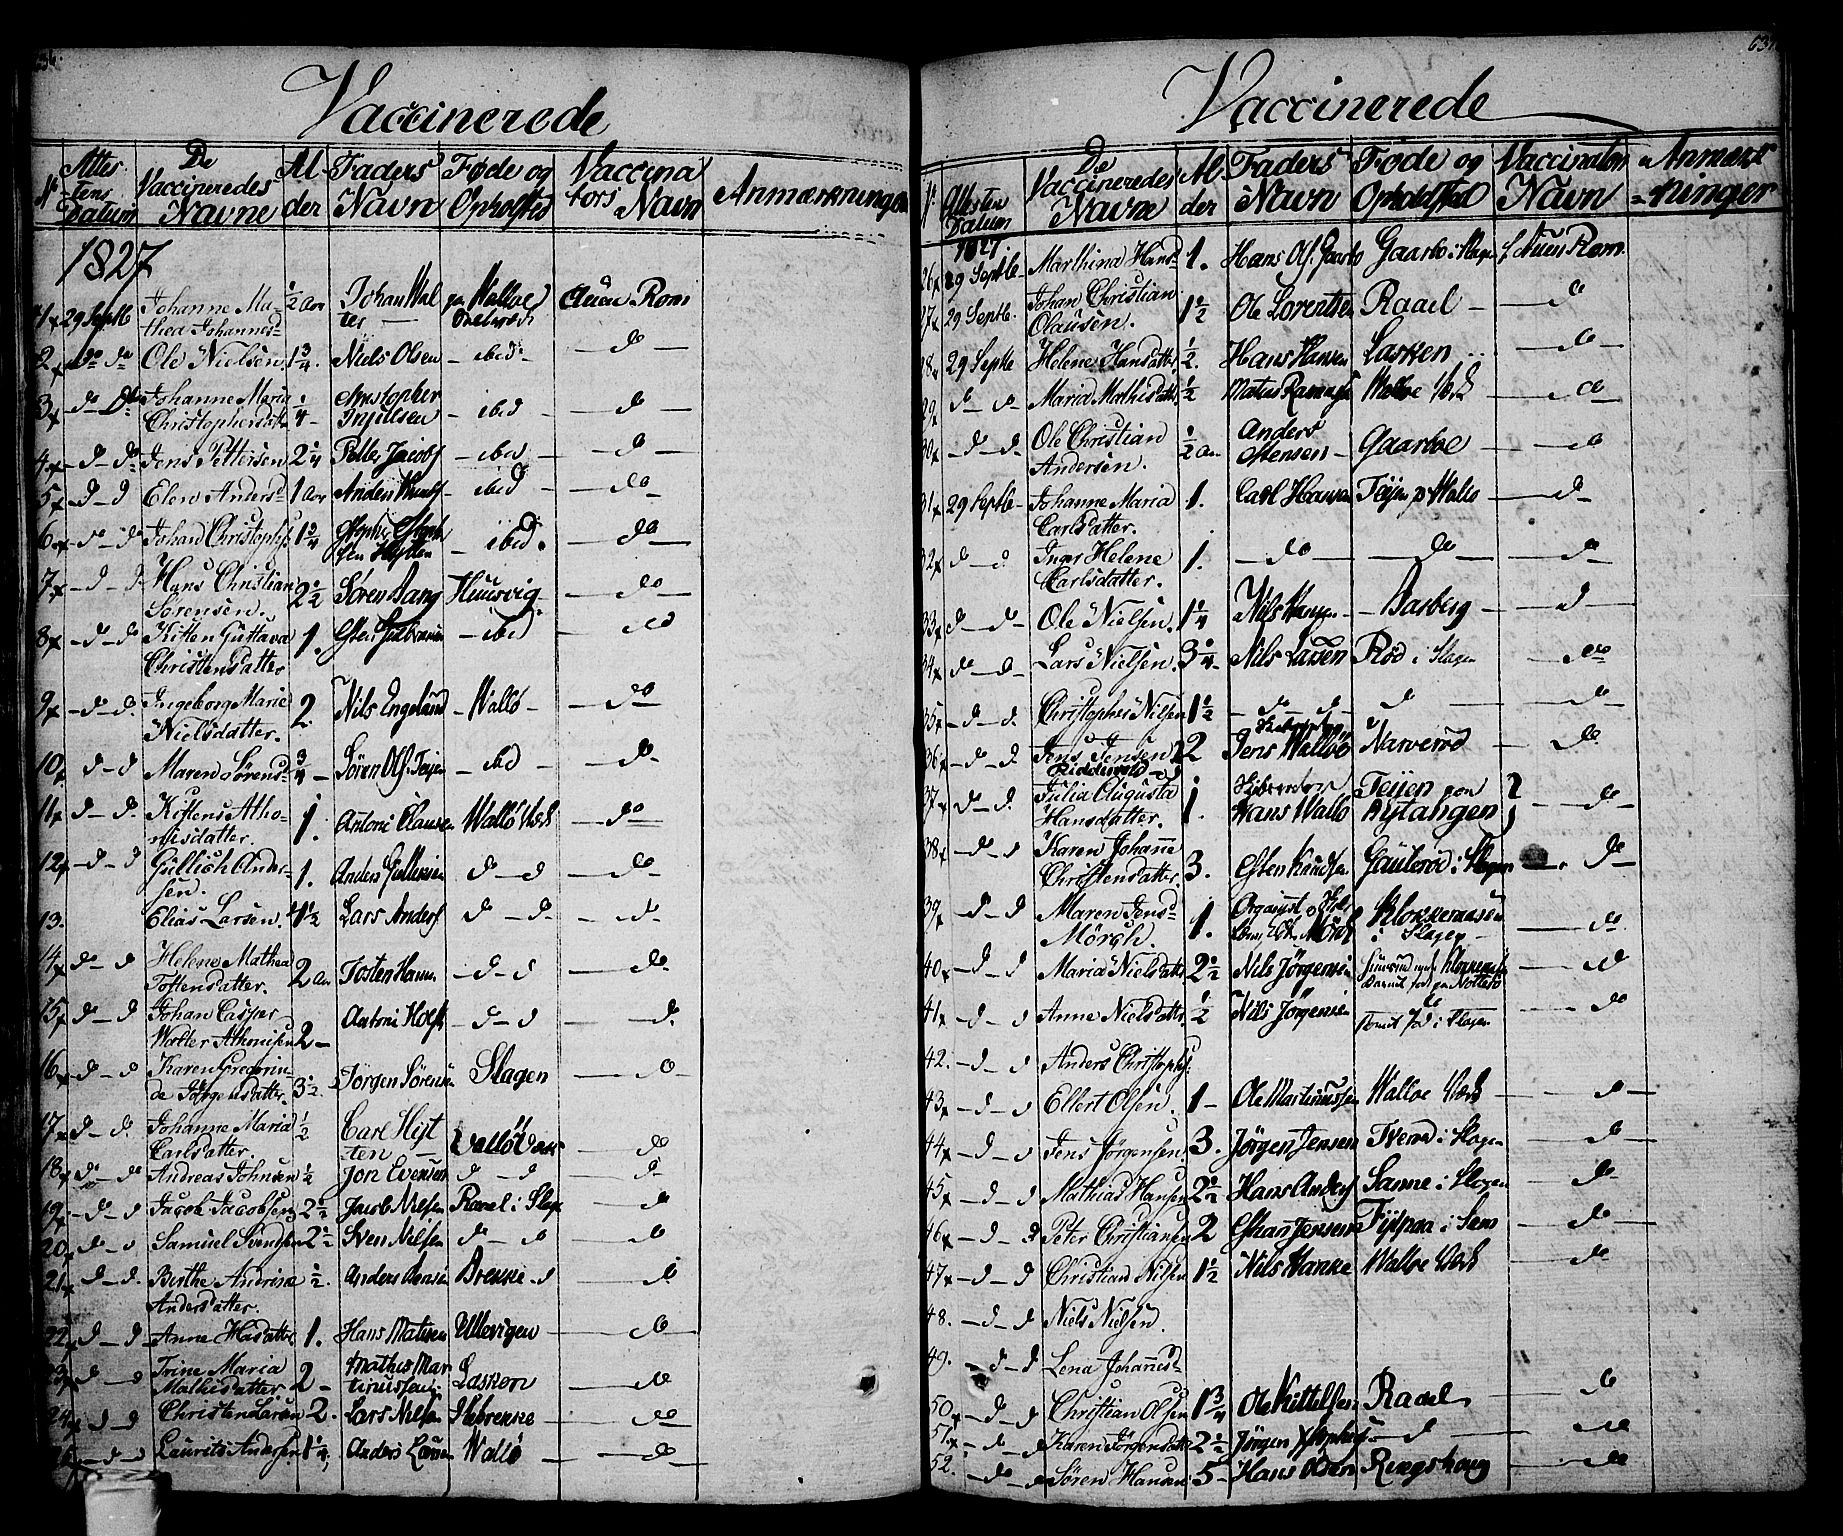 636.
Vaccinerede
No Attestens Datum De Vaccineredes Navne Alder Faders Navn Føde og Opholsted Vaccinators Navn Anmærkninger
1827
1 x 29 Septb Johanne Mathea Johannesd 1/2 aar Johan Walter Walloe Auen Rom
2 x do do Ole Nielsen 1 3/4. Niels Olsen - ibid - do
3 x - d - do Johanne Maria Christophersd 1/4 Christopher Injulsen - ibid - do
4 x - d - do Jens Pettersen 2 1/4 Petter Jacobs - ibid - do
5 x - d - d Elen Andersd 1 aar Anders - ibid - do
6 x - d - d Johan Christophs 1 2/4 - ibid. - do
7 x - d - d Hans Christian Sørensen. 2 1/2 Søren Aang Huusvig - do
8 x - d - d Kitten Gustava Christensdatter 1. Esten Gulbransen - ibid - do
9 x - d - d. Ingeborg Marie Nielsdatter. 2. Nils Engelund - Wallö - do
10 x d - d Maren Sørensd 3/4 - Søren Ols. Teijen - ibid - d.
11 x d - d. Kistens Athonisdatter 1. Antoni Clausen Wallö Værk - do
12 x - d - d Gullich Andersen. 1. Anders Gullichsen d - d - do
13. Elias Larsen. 1 1/2 Lars Anders d - d. - d.
14 x do - d Helene Mathea Tostensdatter. 2 aar Tosten Hans - d - d - do
15 x d - d Johan Casper Walter Athonisen 2 - Antoni Holst - d - d - d.
16 x - d - d Karen Gregorinde Jörgensdatter. 3 1/2. Jörgen Sörensen Slagen - do
17 x - d - d. Johanne Maria Carlsdatter. 1/2 Carl Hyt ten Vallö Værk - do
18 x do - do Andreas Johnsen 1/2 Jon Evensen d - d - d
19 x - d - d Jacob Jacobsen 2 1/2 Jacob Nilsen Raael i Slag - do
20 x d - d Samuel Svendsen 2 1/2 Sven Nilsen d - d - do
21 x - d - d. Birthe Andrine Andersdatter. 1/2. Anders Jensen Brekke - d - do
22 x d - d Anne Hansdatter 1. Hans Matisen Ullevigen - do
23 x d - d Trine Maria Mathisdatter 2 - Mathis Martinussen. Lasken - do
24 x d - d Christen Larsen 2. Lars Nilsen Hebrekke - do
25 x - d - d Laurits Andersen 1 1/4, Anders Wallö - do
637
Vaccinerede
No Attesten Datum De Vaccineredes Navne Alder Faders Navn Føde og Opholdsted Vaccinators Navn Anmærkninger
1827.
26 x 29 Septb - Marthina Hansd 1. Hans Ols. Gaarbo Gaarbo i Slagen Auen Rom.
27 x 29 Septb. Johan Christian Olausen. 1 1/2 Ole Lorentsen Raael - do
28 x 29 Septb Helene Hansdatter 1/2. Hans Hansen Lasken - do
29 x d - d - Maria Mathisdatter 1/2 Walloe - do
30 x - d - d. Ole Christian Andersen. 1/2 aar Anders Stensen - Gaarboe - do
31 x 29 Septb - Johanne Maria Carlsdatter. 1. Carl Hansen Teijen p Wallo - d -
32 x d - d Inger Helene Carlsdatter. 1. - do - do - do
33 x d - d - Ole Nielsen. 1 1/4 Nils Hansen - Basberg - d -
34 x - do - d - Lars Nielsen 3 1/4 - Nils Larsen Röd i Slagen - do
35 x - d - d. Christopher Nilsen 1 1/2 - d - d - d - do
36 x - d - d. Jens Jensen Ridderwold 2 Jens Wallöe Narveröd - do.
37 x - d - d. Julia Augusta Hansdatter. 1. Hans Wallo Teijen paa Rystangen - do
38 x - d - d Karen Johanne Christensdatter. 3. Esten Knudsen Gauleröd i Slagen - do -
39 x - d - d Maren Jensd Mörch. 1. Organist Mörch Klokkernæsen i Slagen - do
40 x - d - d Maria Nielsdatter 2 1/2 Nils Jörgensen - do
41 x - d - d Anne Nielsdatter. 1/2 Nils Jörgensen do Slagen - do
42. - d - d Anders Christophs.
43 x - d - d Ellert Olsen. 1 - Ole Martinussen Walloe Værk - do
44 x - d - d Jens Jörgensen 3. Jörgen Jensen Tveröd i Slagen - do
45 x - d - d Mathias Hansen 2 1/2 Hans Anders Sanne i Slagen - do
46 x - d - d Peter Christiansen 2 Jensen Fyspaa i Sem - do
47 x - d - d Christian Nilsen 1 1/2 Nils Hanke Walloe Værk - do
48. - d - d Niels Nielsen.
49. - d - d Lena Johannesd
50 x - d - d Christian Olsen 1 3/4 Ole Kittelsen Raael - do
51 x - d - d Karen Jörgensdatter 2 1/2 Jörgen - d - do
52. - d - d Sören Hansen 5 - Hans Olsen Ringshoug - do